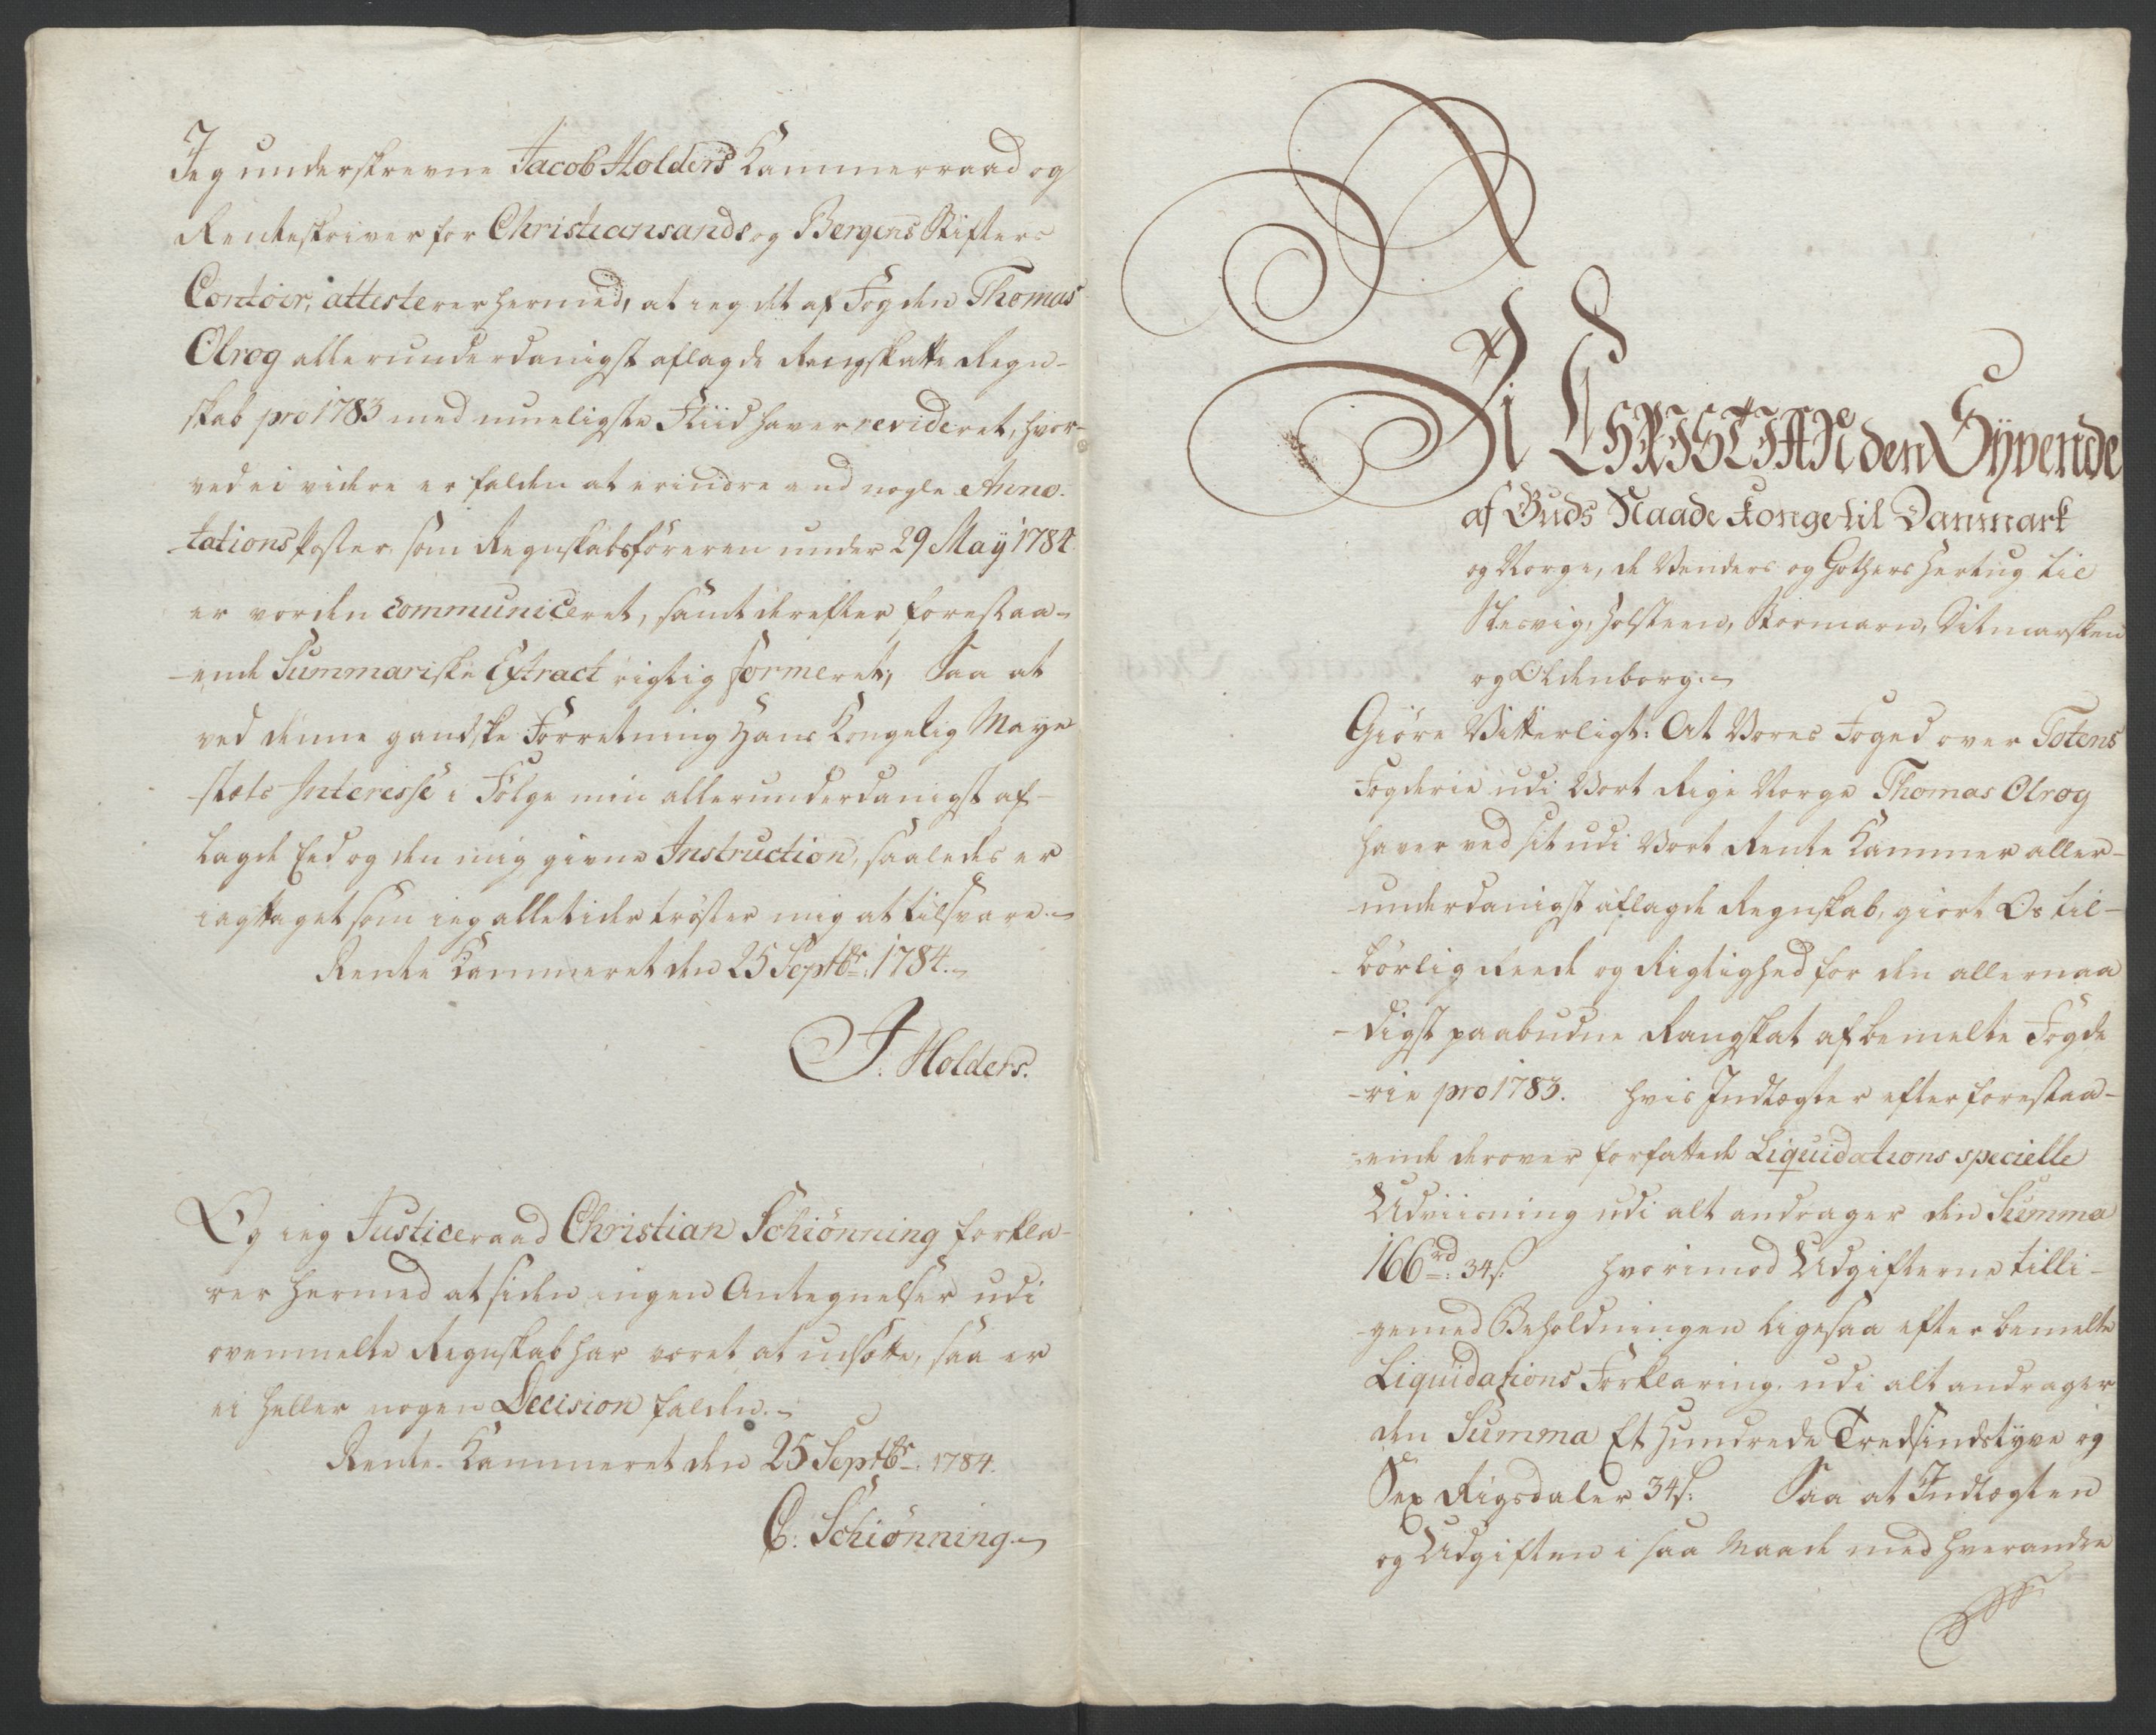 Jeg underskrevne Jacob Holders Kammerraad og
Renteskriver for Christiansands og Bergens Stifters
Contoir, attesterer hermed, at ieg det af Fogden Thomas
Olrog allerunderdanigst aflagde Rangskatts Regn-
skab pro 1783 med mueligste Fliid haver revideret, hvor-
ved ei videre er falden at erindre end nogle Anno-
tations Poster, som Regnskabsföreren under 29 May 1784
er vorden communiceret, samt derefter forestaa-
ende Summariske Extract rigtig formeret, Saa at
ved denne gandske Forretning Hans Kongelig Maye
stæts Interesse i Fölge min allerunderdanigst af-
lagde Eed og den mig givne Instruction, saaledes er
iagttaget som ieg alletider tröster mig at tilsvare.
Rente Kammeret den 25 Septbr: 1784.
J. Holders.
Og ieg Justiceraad Christian Schiönning forkla-
rer hermed at siden ingen Antegnelser udi
ovenmelte Regnskab har været at udsætte, saa er
ei heller nogen Decision falden.
Rente-Kammeret den 25 Septbr: 1784.
C. Schiönning
Vi CHRISTIAN den Syvende
af Guds Naade Konge til Danmark
og Norge, de Venders og Gothers Hertug til
Slesvig, Holsteen, Stormarn, Ditmarsken
og Oldenborg.
Giöre Vitterligt: At Vores Foged over Totens
Fogderie udi Vort Rige Norge Thomas Olrog
haver ved sit udi Vort Rente Kammer aller-
underdanigst aflagde Regnskab, giort Os til-
börlig Reede og Rigtighed for den allernaa
digst paabudne Rangskat af bemelte Fogde
rie pro 1783. hvis Indtægter efter forestaa-
ende derover forfattede Liquidations specielle
Udviisning udi alt andrager den Summa
166 rd: 34 s: hvorimod Udgifterne tilli-
gemed Beholdningen ligesaa efter bemelte
Liquidations Forklaring udi alt andrager
den Summa Et Hundrede Tredsindstyve og
Sex Rigsdaler 34 s: Saa at Indtægten
og Udgiften i saa Maade med hverandre